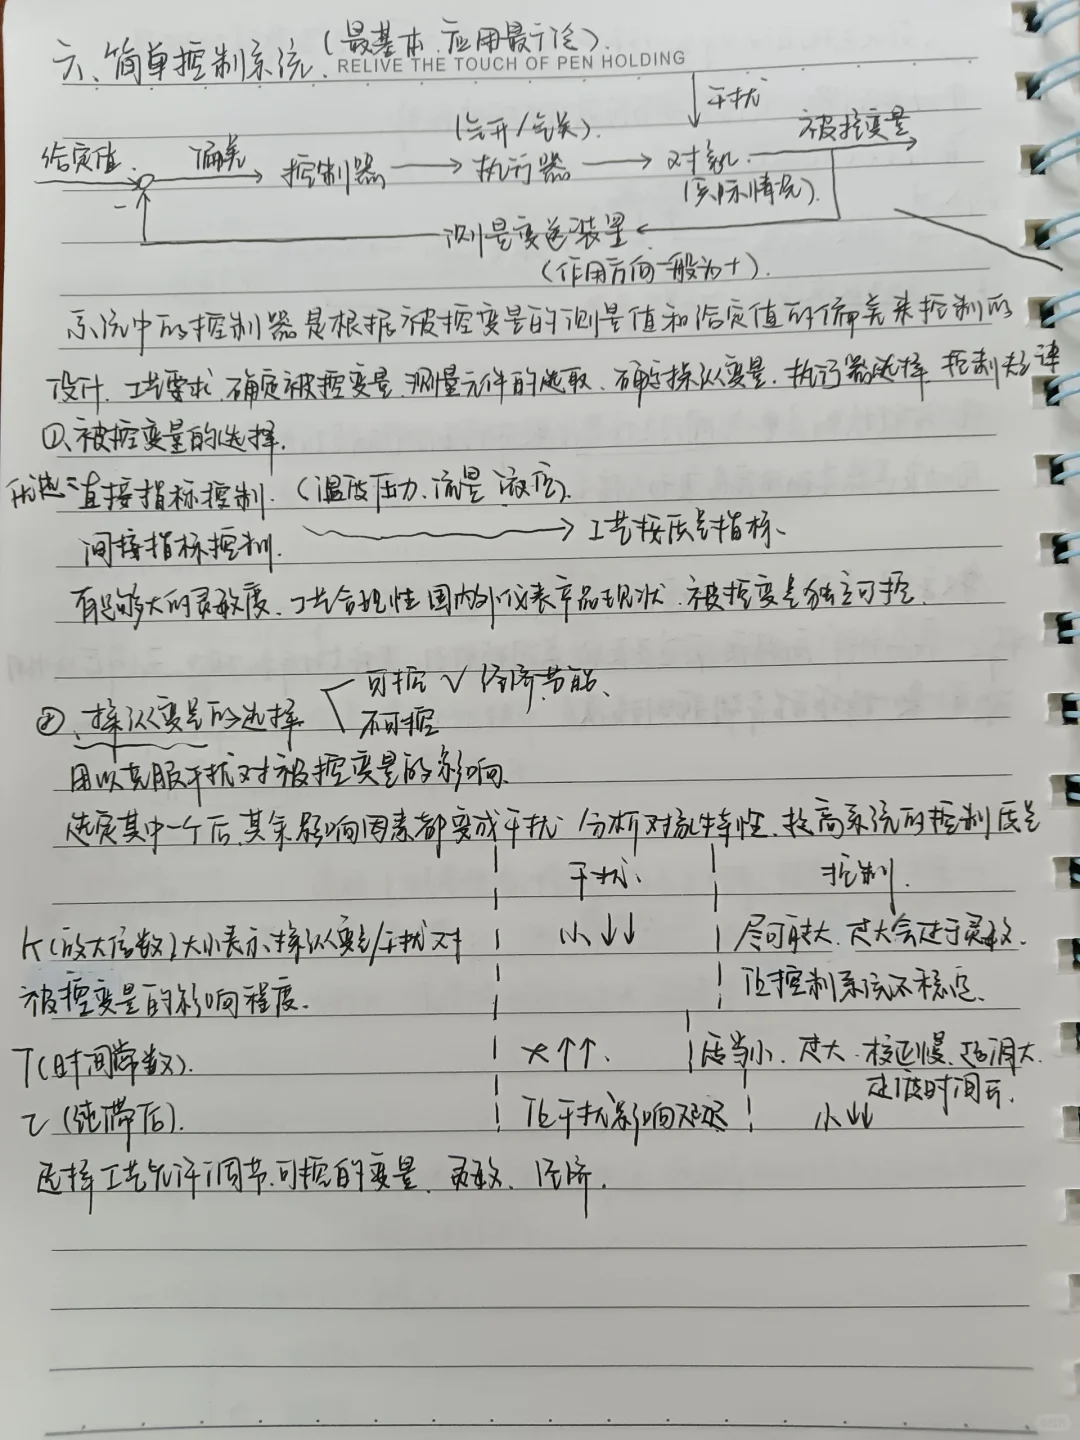 六、简单控制系统.(最基本、应用最广泛).
RELIVE THE TOUCH OF PEN HOLDING
干扰
(气开/气关).
被控变量
给定值 偏差 控制器 执行器 对象
(实际情况).
-
测量变送装置
(作用方向一般为+).
系统中的控制器是根据被控变量的测量值和给定值的偏差来控制的
设计、工艺要求、确定被控变量、测量元件的选取、确定操纵变量、执行器选择、控制规律
①、被控变量的选择.
优选:直接指标控制.(温度压力、流量液位).
间接指标控制. 工艺按质量指标、
有足够大的灵敏度、工艺合理性国内外仪表产品现状、被控变量独立可控.
可控 √ 经济节能、
②、操纵变量的选择 不可控
用以克服干扰对被控变量的影响、
选定其中一个后,其余影响因素都变成干扰 分析对象特性、提高系统的控制质量
干扰、 控制.
K(放大倍数)大小表示、操纵变量/干扰对 小↓↓ 尽可能大、过大会过于灵敏、
被控变量的影响程度. 让控制系统不稳定、
T(时间常数). 大↑↑、 适当小、过大、校正慢、超调大、
过渡时间长.
τ(纯滞后). 让干扰影响延迟 小↓↓
选择工艺允许调节、可控的变量、灵敏、经济.